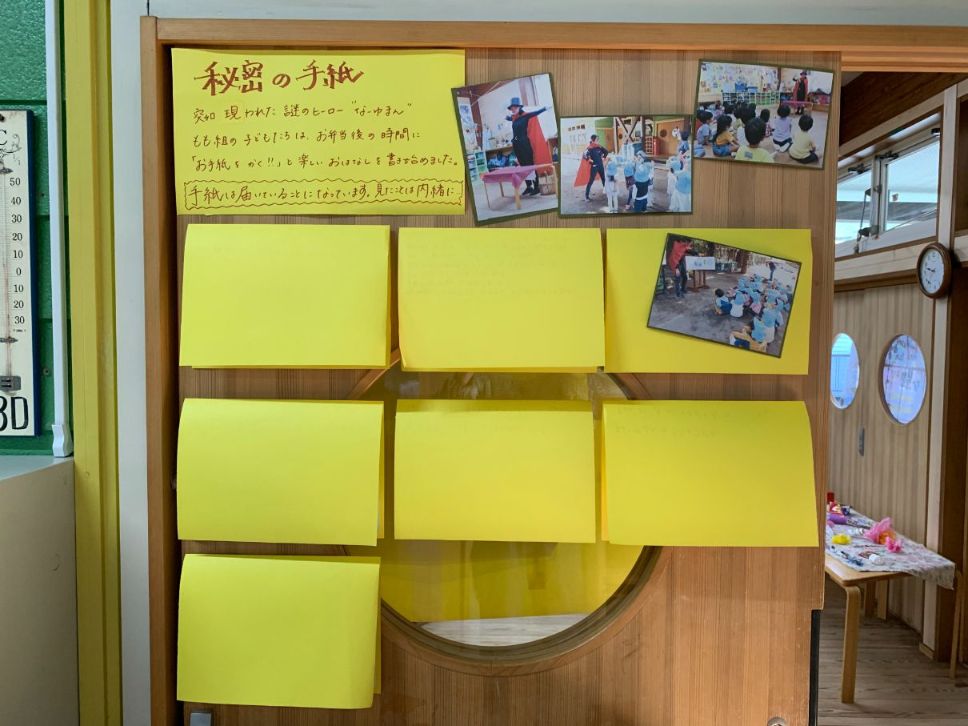 秘密の手紙
突如現われた謎のヒーロー"なーゆまん"
もも組の子どもたちは、お弁当後の時間に
「お手紙をかく!!」と楽しいおはなしを書き始めました。
手紙は届いていることになっています。見たことは内緒に…
C
50
40
30
20
10
0
10
20
30
3D